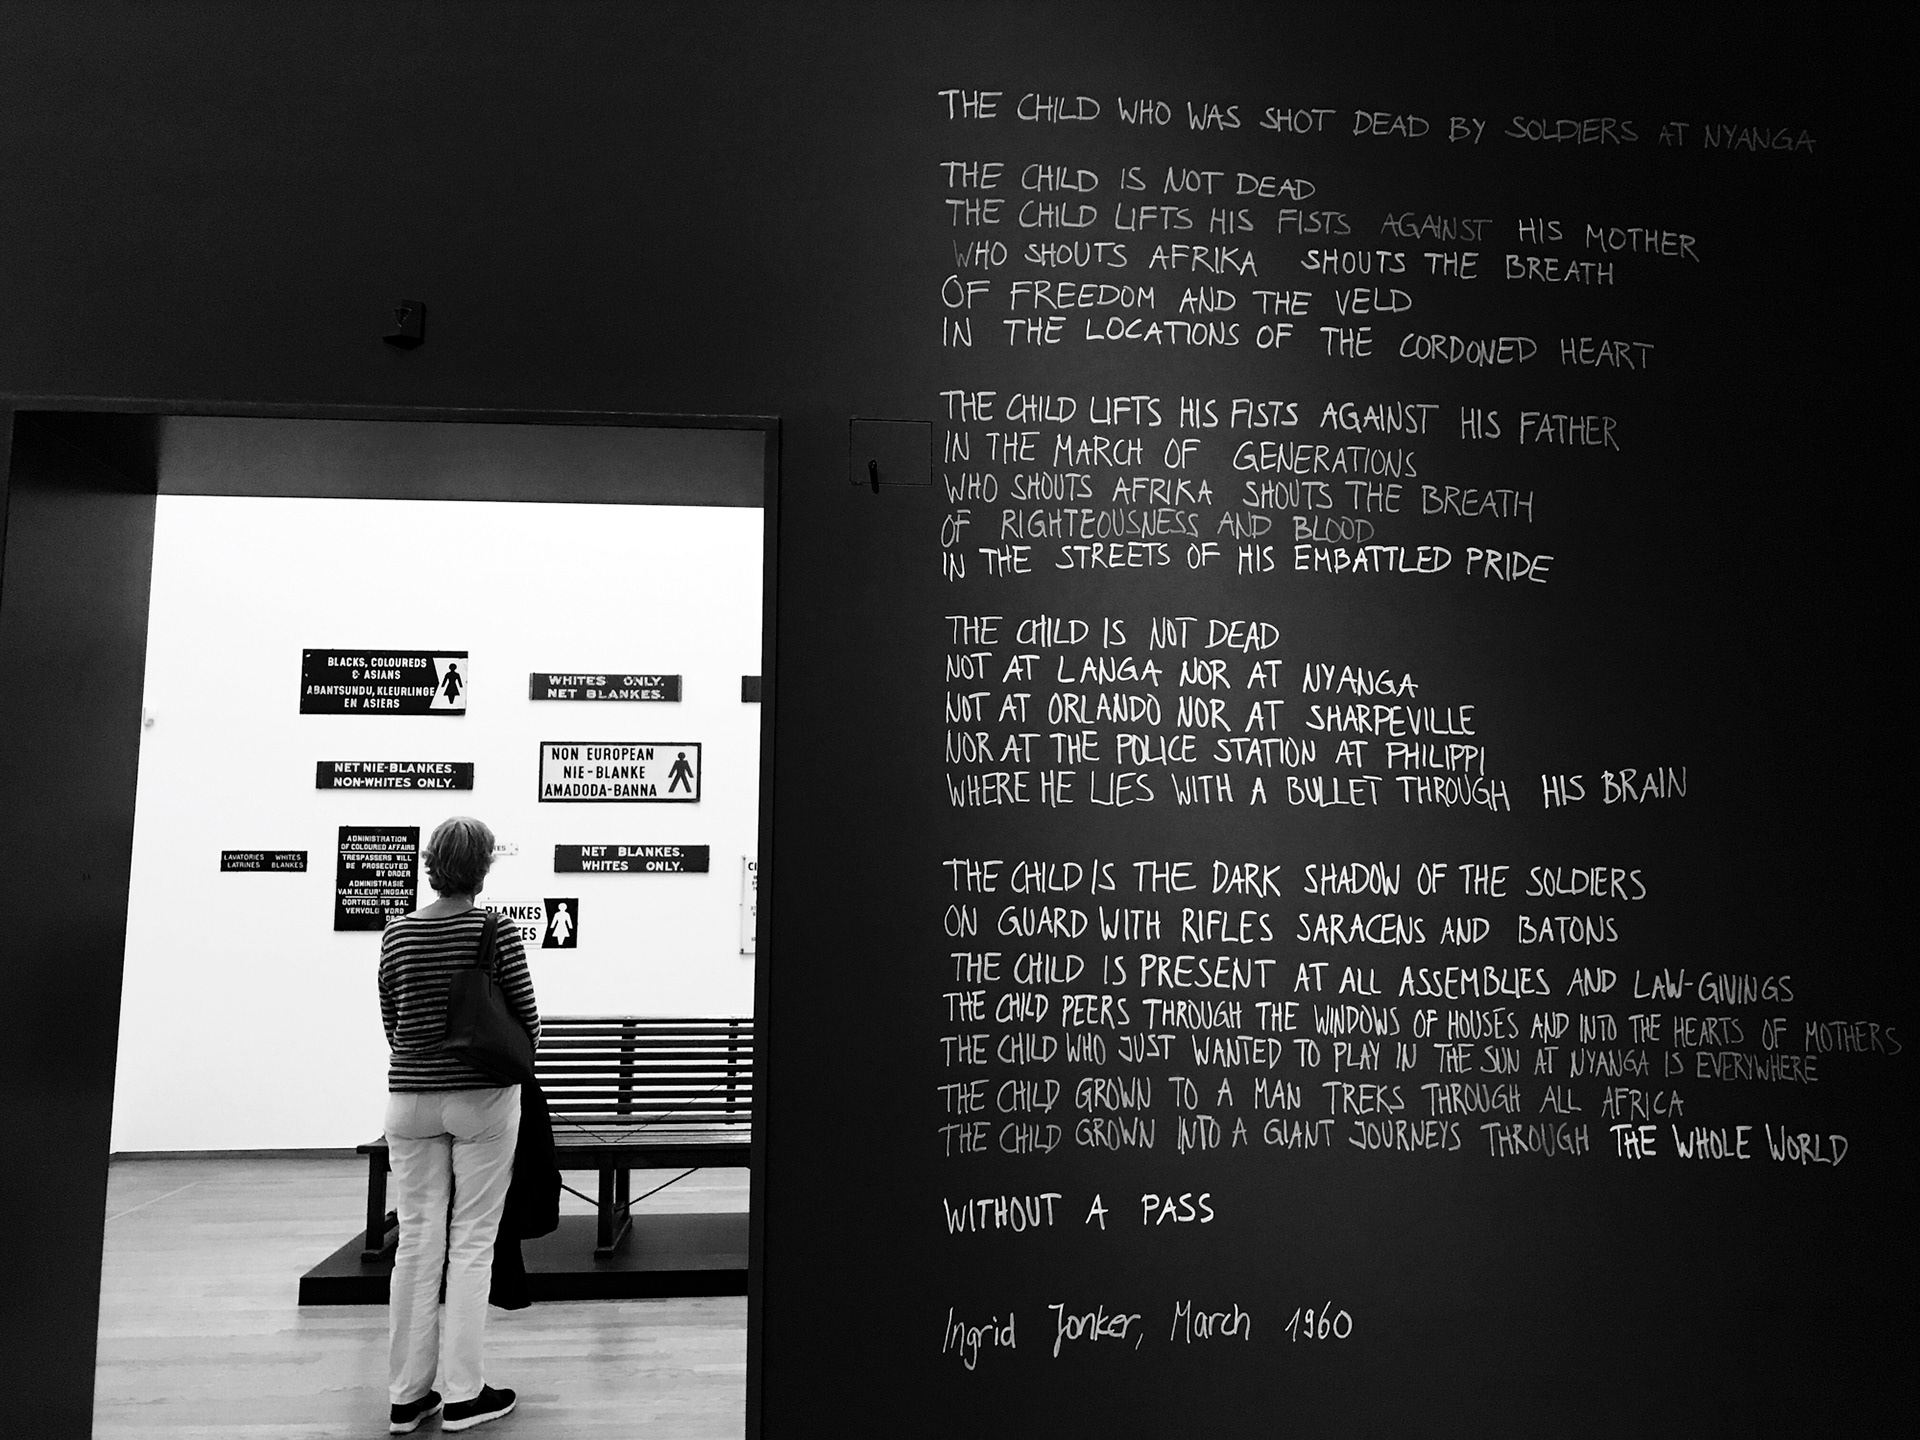 THE CHILD WHO WAS SHOT DEAD BY SOLDIERS AT NYANGA
THE CHILD IS NOT DEAD
THE CHILD LIFTS HIS FISTS AGAINST HIS MOTHER
WHO SHOUTS AFRIKA SHOUTS THE BREATH
OF FREEDOM AND THE VELD
IN THE LOCATIONS OF THE CORDONED HEART
THE CHILD LIFTS HIS FISTS AGAINST HIS FATHER
IN THE MARCH OF GENERATIONS
WHO SHOUTS AFRIKA SHOUTS THE BREATH
OF RIGHTEOUSNESS AND BLOOD
IN THE STREETS OF HIS EMBATTLED PRIDE
THE CHILD IS NOT DEAD
NOT AT LANGA NOR AT NYANGA
NOT AT ORLANDO NOR AT SHARPEVILLE
NOR AT THE POLICE STATION AT PHILIPPI
WHERE HE LIES WITH A BULLET THROUGH HIS BRAIN
THE CHILD IS THE DARK SHADOW OF THE SOLDIERS
ON GUARD WITH RIFLES SARACENS AND BATONS
THE CHILD IS PRESENT AT ALL ASSEMBLIES AND LAW-GIVINGS
THE CHILD PEERS THROUGH THE WINDOWS OF HOUSES AND INTO THE HEARTS OF MOTHERS
THE CHILD WHO JUST WANTED TO PLAY IN THE SUN AT NYANGA IS EVERYWHERE
THE CHILD GROWN TO A MAN TREKS THROUGH ALL AFRICA
THE CHILD GROWN INTO A GIANT JOURNEYS THROUGH THE WHOLE WORLD
WITHOUT A PASS
Ingrid Jonker, March 1960
BLACKS, COLOUREDS
& ASIANS
ABANTSUNDU, KLEURLINGE
EN ASIERS
WHITES ONLY.
NET BLANKES.
NET NIE-BLANKES.
NON-WHITES ONLY.
NON EUROPEAN
NIE-BLANKE
AMADODA-BANNA
LAVATORIES WHITES
LATRINES BLANKES
ADMINISTRATION
OF COLOURED AFFAIRS
TRESPASSERS WILL
BE PROSECUTED
BY ORDER
ADMINISTRASIE
VAN KLEURLINGSAKE
OORTREDERS SAL
VERVOLG WORD
NET BLANKES.
WHITES ONLY.
BLANKES